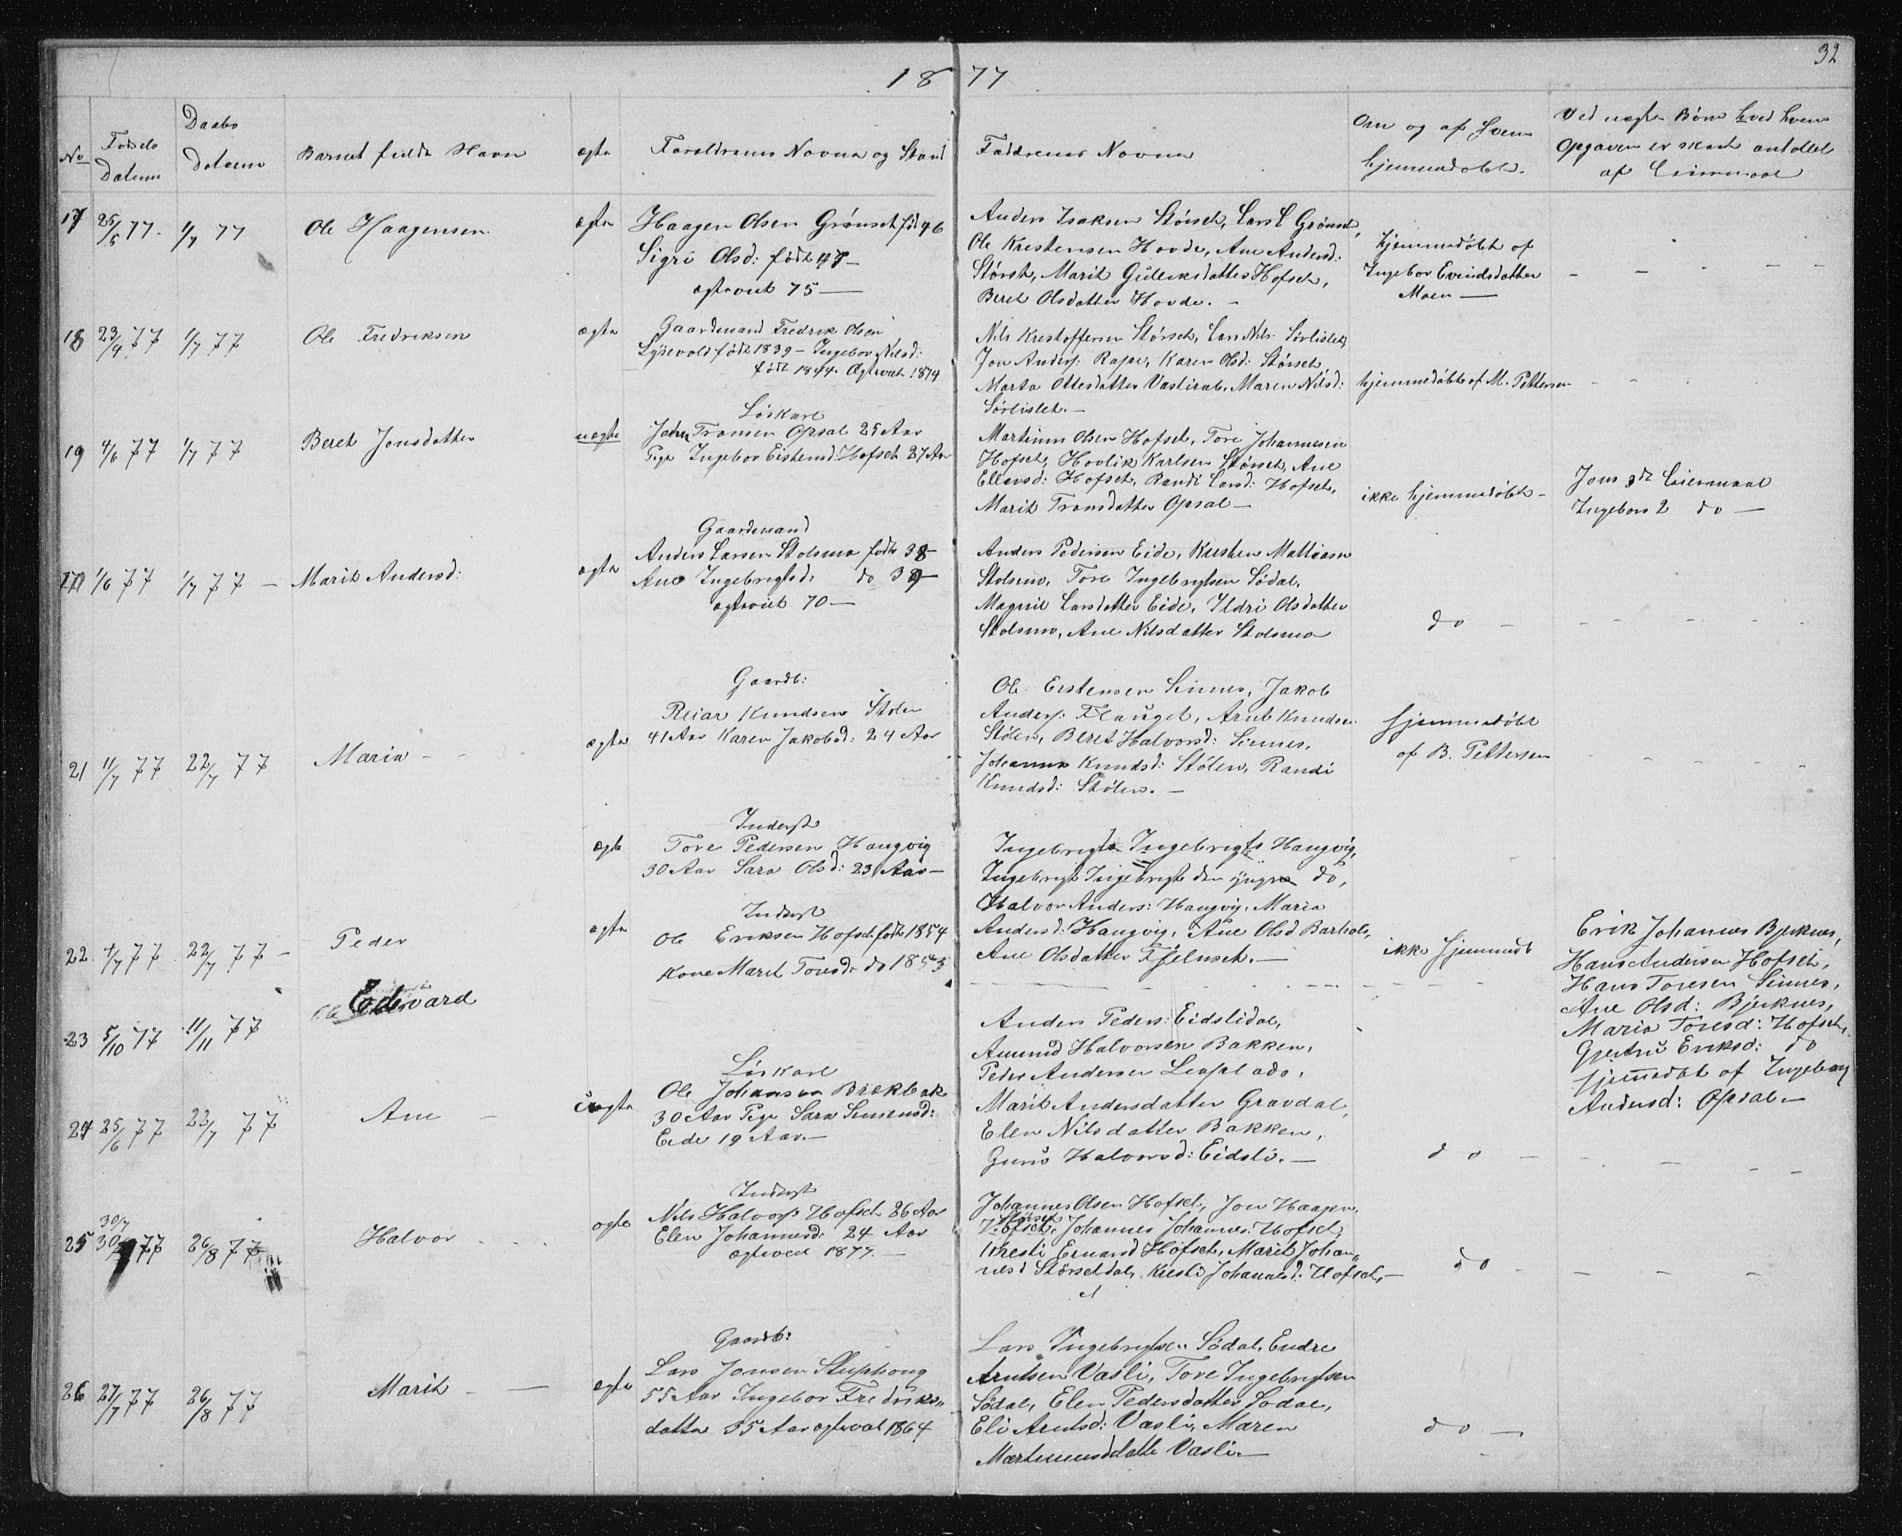 32
1877
No
Fødsels Datum
Daabs Datum
Barnets fulde Navn
ægte
Forældrenes Navne og Stand
Faddrenes Navne
Om og af hvem hjemmedøbt.
Ved uægte Børn hved hvem
Opgaven er skeet antallet
af Leiermaal
17 25/5 77. 1/7 77 Ole Haagensen ægte
Haagen Olsen Grønset født 46
Sigri Olsd: født 47 —
ægteviet 75 —
Anders Isaksen Størset, Lars L Grønset,
Ole Kristensen Hovde, Ane Andersd:
Størset, Marit Gulleksdatter Hofset,
Beret Olsdatter Hovde. —
hjemmedøbt af
Ingebor Evindsdatter
Moen —
18 23/4 77 1/7 77 Ole Fredriksen ægte
Gaardmand Fredrik Olsen
født 1839 — Ingebor Nilsd:
født 1844. Ægteviet 1874
Nils Kristoffersen Størset, Lars Nils: Sørlislet,
Jon Anders: Karen Olsd: Størset,
Marta Ottesdatter Maren Nilsd:
Sørlislet. —
hjemmedøbt af M. Pettersen
19 4/6 77 1/7 77 Beret Jonsdatter uægte
Løskarl
John Tronsen Opsal 25 Aar
Pige Ingebor Eistensd: Hofset 27 Aar
Martinus Olsen Hofset, Tore Johannesen
Hofset, Hovlik Karlsen Størset, Ane
Ellevsd: Hofset, Randi Larsd: Hofset,
Marit Tronsdatter Opsal —
ikke hjemmedøbt —
Jons 3die Leiermaal
Ingebors 2 do —
1/6 77 1/7 77 — Marit Andersd: ægte
Gaardmand
Anders Larsen Stolsmo født 38 —
Ane Ingebrigtsd: do 39 —
ægteviet 70 —
Anders Pedersen Eide, Kristen Mathiasen
Stolsmo, Tore Ingebrigtsen Sødal,
Magnil Larsdatter Eide, Ildri Olsdatter
Stolsmo, Ane Nilsdatter Stolsmo
do —
21 11/7 77 22/7 77 Maria — ægte
Gaardb:
Reiar Knudsen Stølen
41 Aar Karen Jakobsd: 24 Aar
Ole Eistensen Sinnes, Jakob
Anders: Flauget, Arnt Knudsen
Stølen, Beret Halvorsd: Sinnes,
Johanna Knudsd: Stølen, Randi
Knudsd: Stølen. —
hjemmedøbt
af B. Pettersen
22 4/7 77 22/7 77 — Peder ægte
Inderst
Tore Pedersen Haugvig
30 Aar Sara Olsd: 23 Aar —
Ingebrigt Ingebrigts Haugvig,
Ingebrigt Ingebrigt den yngre do,
Halvor Anders: Haugvig, Maria
Andersd: Haugvig, Ane Olsd
Ane Olsdatter —
ikke hjemmedt
23 5/10 77 11/11 77 Edevard ægte
Inderst
Ole Eriksen Hofset født 1854
Kone Marit Toresd: do 1853
Erik Johannes Bjerknes,
Hans Andersen Hofset,
Hans Toresen Sinnes,
Ane Olsd: Bjerknes,
Maria Toresd: Hofset,
Gjertru Eriksd: do
hjemmedøbt af Ingeborg
Andersd: Opsal —
24 25/6 77 23/7 77 Ane — uægte
Løskarl
Ole Johansen
30 Aar Pige Sara Simensd:
Eide 19 Aar. —
Anders Peders: Eidslidal,
Amund Halvorsen Bakken,
Peder Andersen
Marit Andersdatter Gravdal,
Elen Nilsdatter Bakken,
Guru Halvorsd: Eidsli. —
do —
25 30/7 77 26/8 77 Halvor ægte
Inderst
Nils Halvors: Hofset 26 Aar
Elen Johannesd: 24 Aar
ægteviet 1877. —
Johannes Olsen Hofset, Jon Haagen
Størset, Johannes Johannes: Hofset,
Kresti Hofset, Marit Johan„
nesd Størsetdal, Kresti Johannesd: Hofset, —
do —
26 27/7 77 26/8 77 Marit — ægte
Gaardb:
Lars Jonsen Stuphoug
55 Aar Ingebor Fredriks„
datter 35 Aar ægteviet 1864
Lars Ingebrigtsen Sødal, Endre
Arntsen Vasli, Tore Ingebrigtsen
Sødal, Elen Pedersdatter Sodal,
Eli Arntsd: Vasli, Maren
Martinusdatte Vasli. —
do —